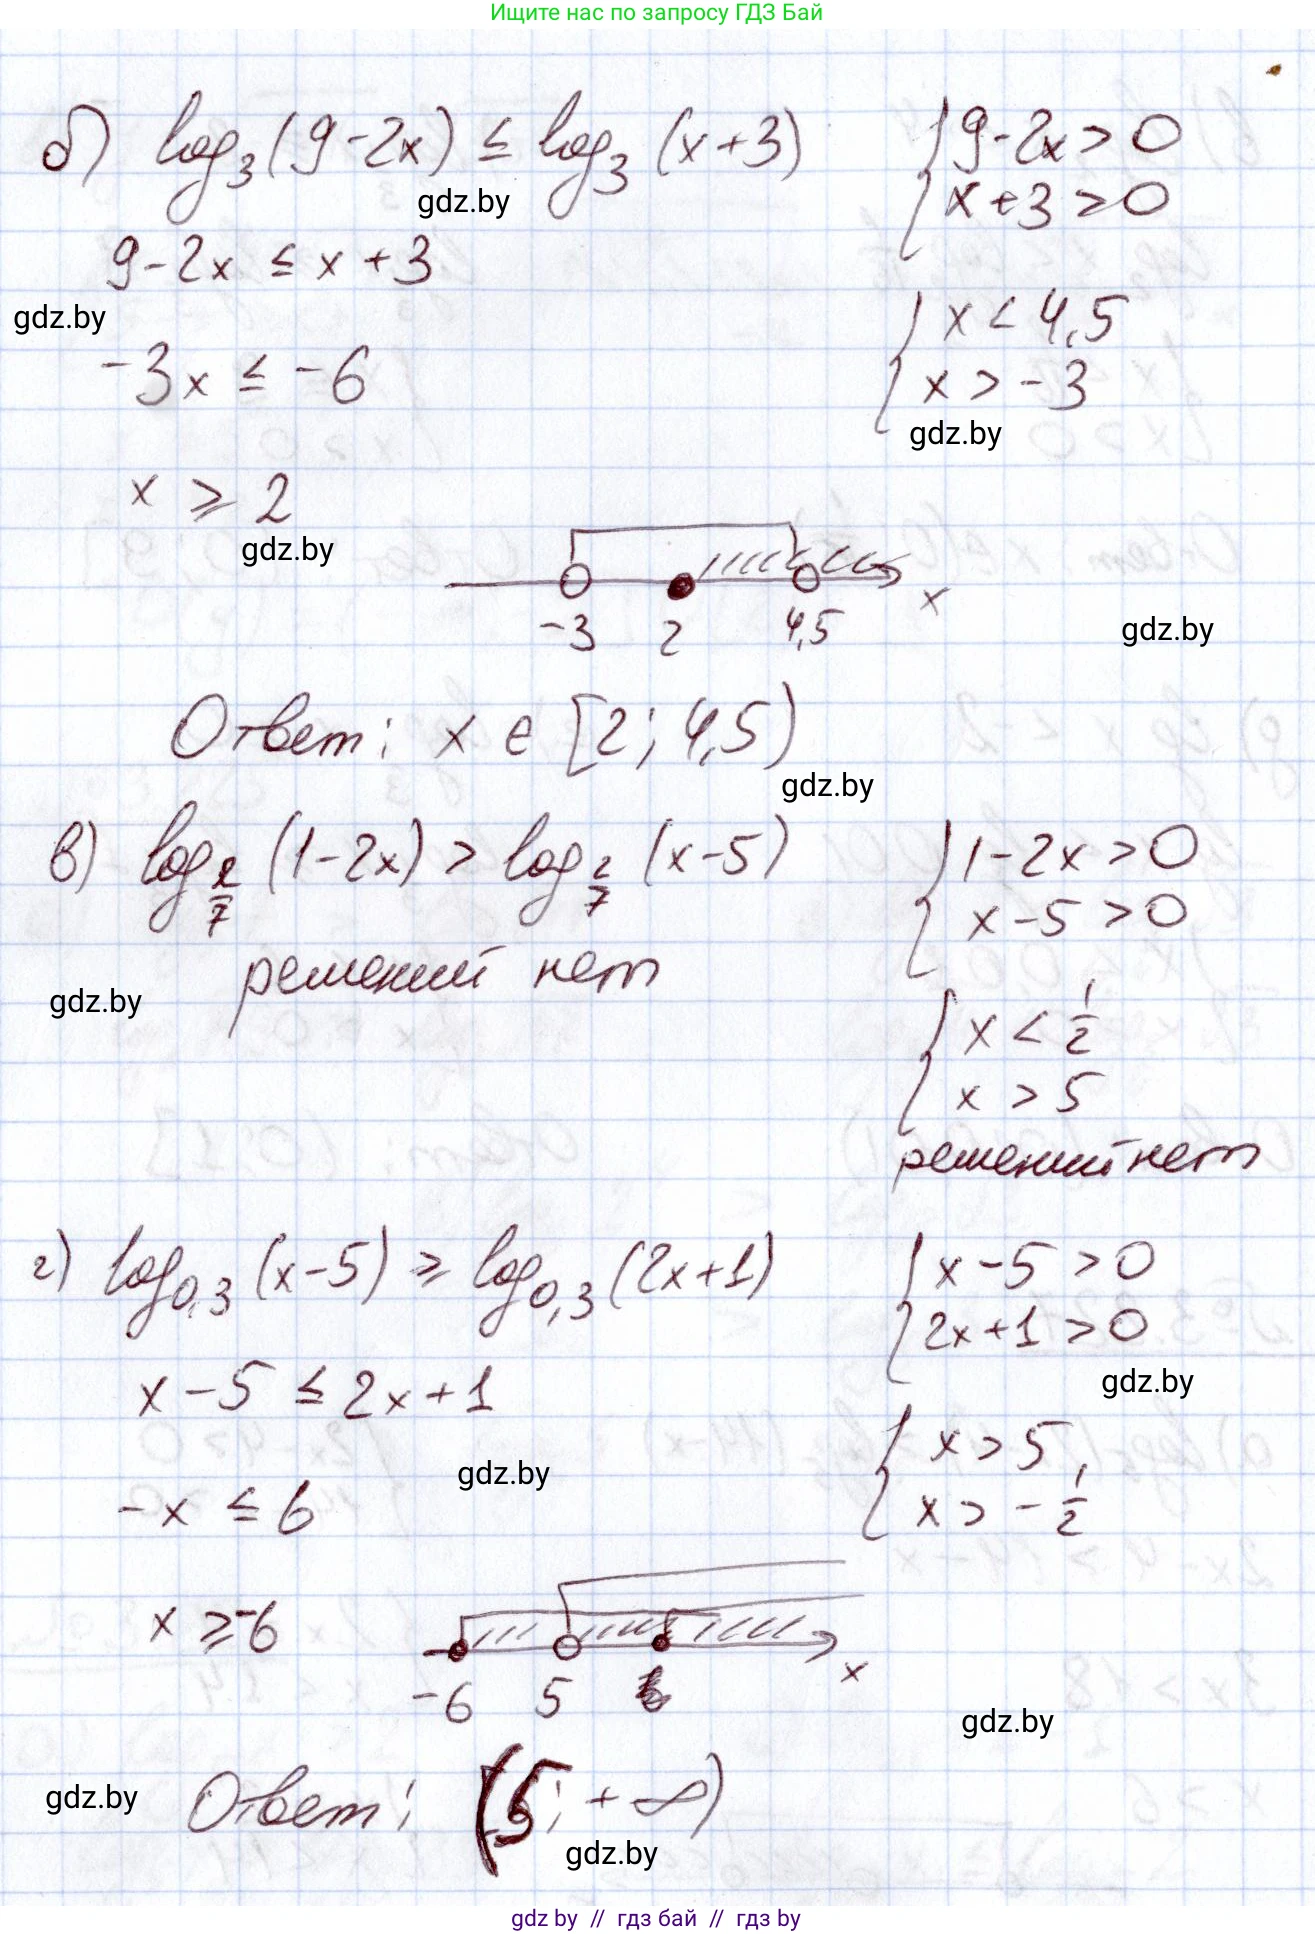 Ищите нас по запросу ГДЗ Бай
б) log₃(9-2x) ≤ log₃(x+3) { 9-2x > 0
x+3 > 0
gdz.by
9-2x ≤ x+3
gdz.by
{ x < 4,5
-3x ≤ -6
x > -3
gdz.by
x ≥ 2
gdz.by
-3 2 4,5 x
gdz.by
Ответ: x ∈ [2; 4,5)
gdz.by
в) log_{2/7}(1-2x) > log_{2/7}(x-5) { 1-2x > 0
x-5 > 0
решений нет
gdz.by
{ x < 1/2
x > 5
решений нет
г) log_{0,3}(x-5) ≥ log_{0,3}(2x+1) { x-5 > 0
2x+1 > 0
gdz.by
x-5 ≤ 2x+1
{ x > 5
gdz.by
-x ≤ 6
x > -1/2
x ≥ -6
-6 5 x
gdz.by
gdz.by
Ответ: (5; +∞)
gdz.by
gdz by // гдз бай // гдз by